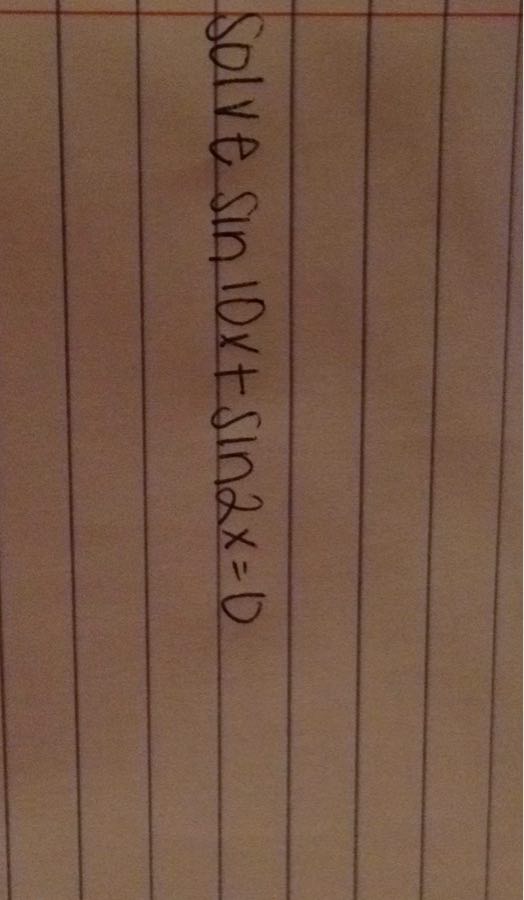 Solve sin 10x + sin2x = 0